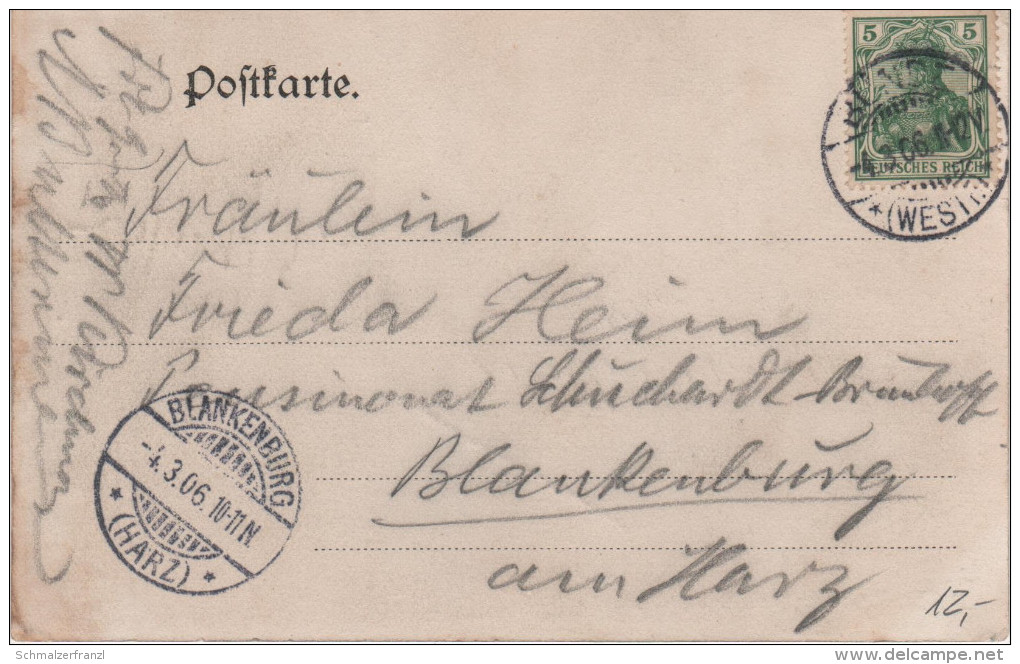 Postkarte.
5 5
DEUTSCHES REICH
4.3.06.11-12V
* (WESTF.
Fräulein
Frieda Heim
Pensionat Schuchardt-Brunhoff
Blankenburg
am Harz
BLANKENBURG
-4.3.06.10-11N.
* (HARZ) *
12,-
Schmalzerfranzl